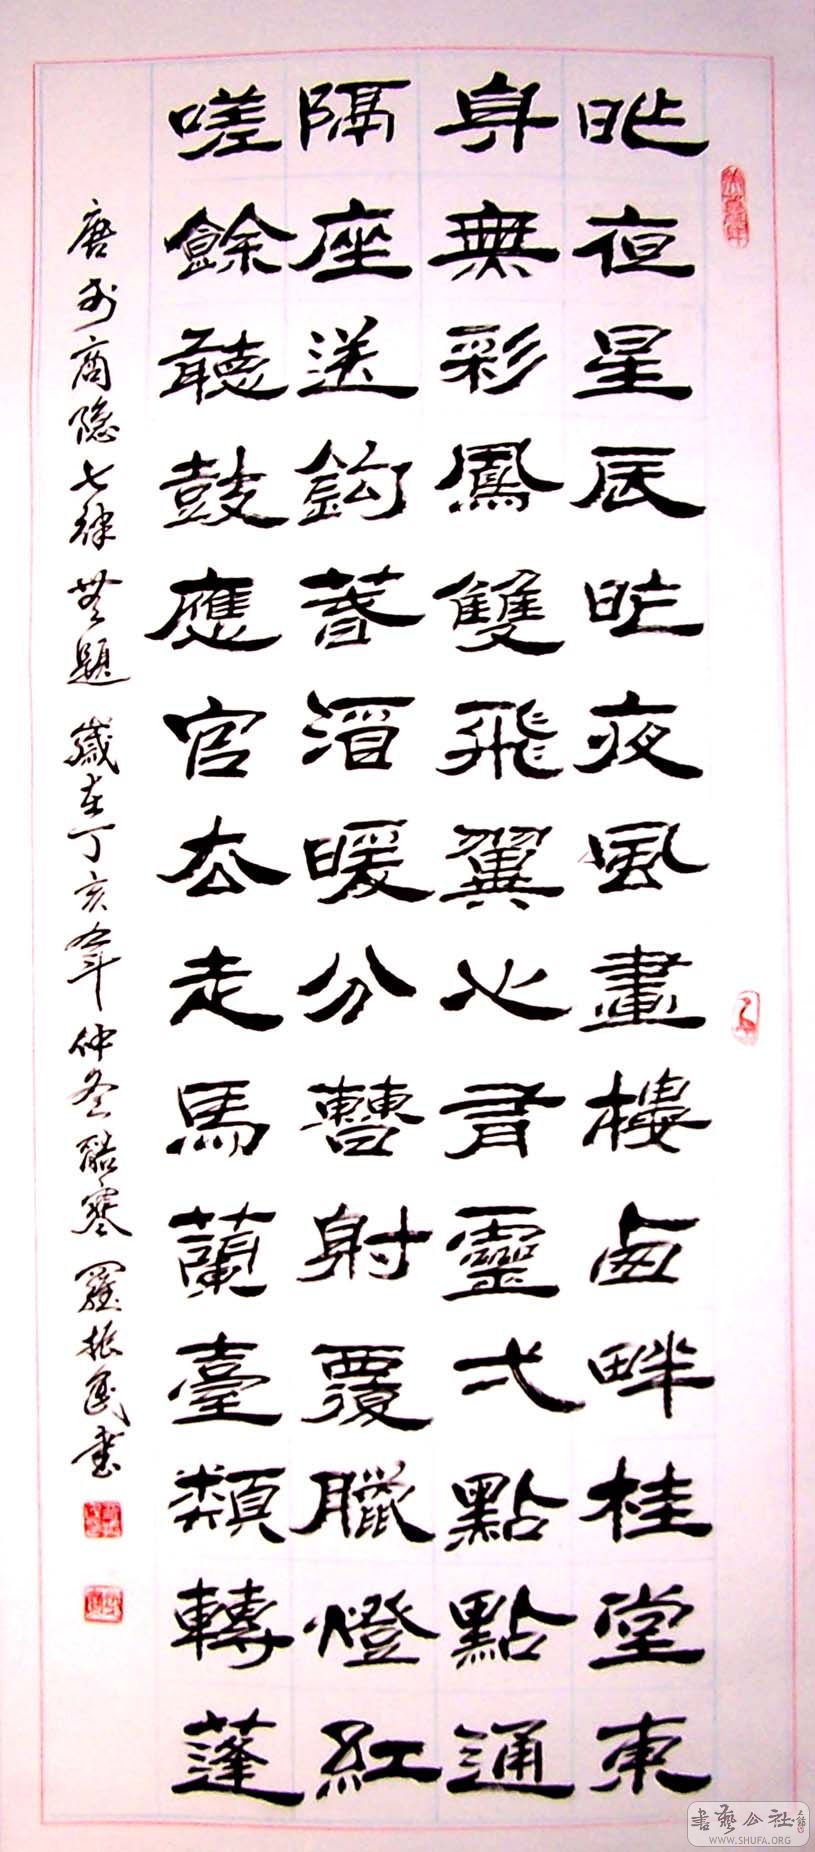 昨夜星辰昨夜風畫樓西畔桂堂東
身無彩鳳雙飛翼心有靈弌點點通
隔座送鈎春酒暖分曹射覆臘燈紅
嗟餘聽鼓應官去走馬蘭臺類轉蓬
唐李商隐七律無題 歲在丁亥年仲冬酷寒 羅振書
書藝公社
WWW.SHUFA.ORG